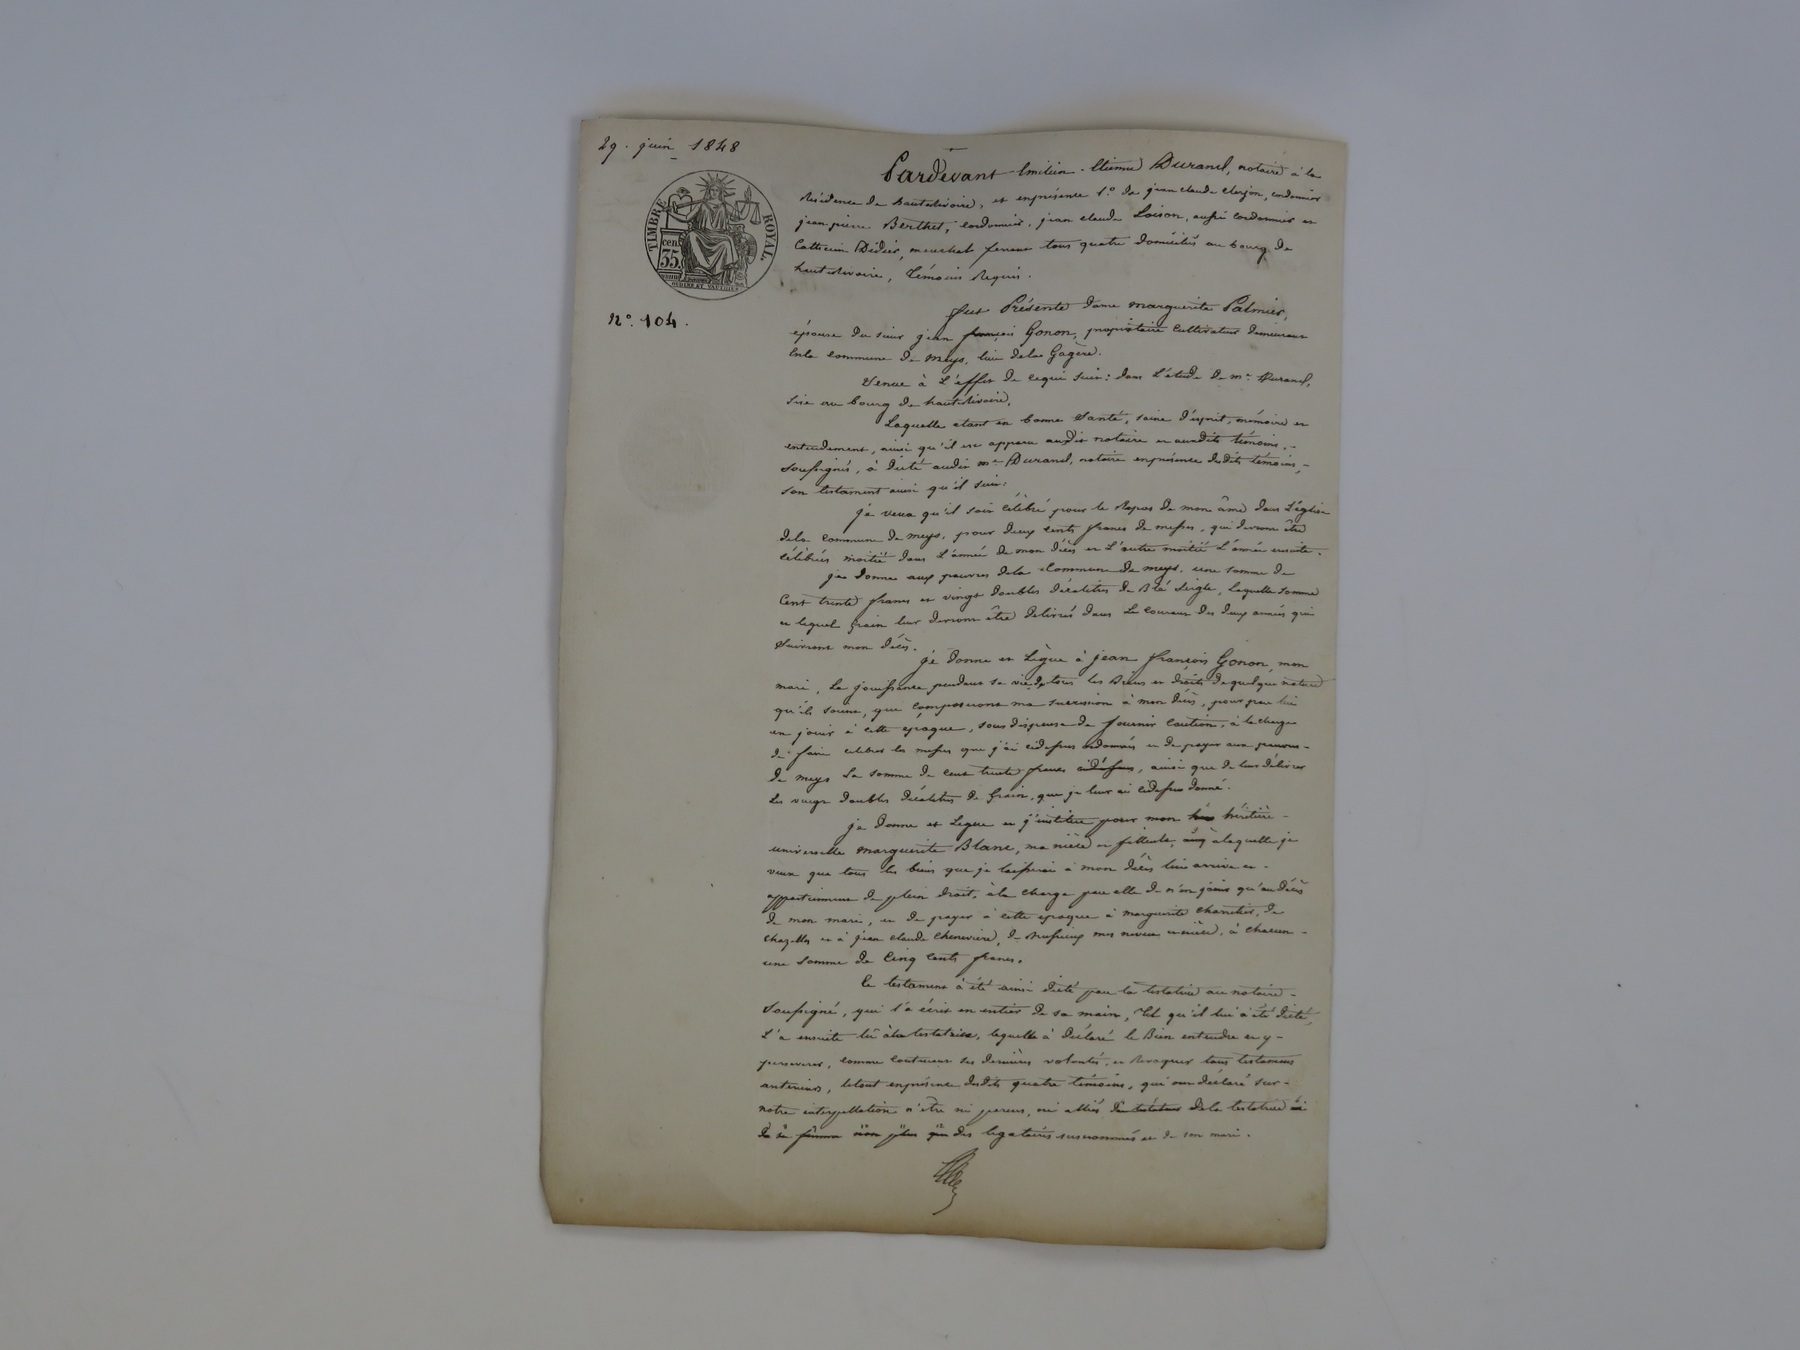 29. juin 1848
TIMBRE ROYAL.
cen. 35.
N°. 104.
Pardevant Emilien-Etienne Durand, notaire à la
Résidence de hauterivoire, et enprésence 1.° de jean claude Clerjon, cordonnier
jean pierre Berthet, cordonnier, jean claude Loison, aussi cordonnier et
Didier, marechal ferrant tous quatre domiciliés au bourg de
hauterivoire, Témoins Requis.
fut Présente dame marguerite Palmier,
épouse du sieur jean françois Gonon, propriétaire cultivateur demeurant
enla commune de meys, lieu dela Gagère.
Venue à L'effet de cequi suit: dans L'étude de m.e Durand,
sise au bourg de hauterivoire.
Laquelle etant en bonne Santé, saine d'esprit, mémoire et
entendement, ainsi qu'il est apparu audit notaire et auxdits témoins,
Soussignés, à dicté audit m.e Durand, notaire enprésence desdits témoins,
son testament ainsi qu'il suit:
je veux qu'il soit célébré pour le Repos de mon âme dans L'église
dela commune de meys, pour deux cents francs de messes, qui devront être
célébrées moitié dans L'année de mon décès et L'autre moitié L'année ensuite.
je donne aux pauvres dela Commune de meys, une somme de
Cent trente francs et vingt doubles décalitres de Blé Seigle, laquelle somme
et lequel grain leur devront être délivrés dans Le courant des deux années qui
Suivront mon décès.
je donne et Lègue à jean françois Gonon, mon
mari, La jouissance pendant sa vie de tous les Biens et droits de quelque nature
qu'ils soient, qui composeront ma succession à mon décès, pour par lui
en jouir à cette epoque, sous dispense de fournir caution, à la charge
de faire celebrer les messes que j'ai cidessus ordonnées et de payer aux pauvres
de meys La somme de cent trente francs cidessus, ainsi que de leur délivrer
Les vingt doubles décalitres de Grain, que je leur ai cidessus donné.
je donne et Lègue et j'institue pour mon héritière
universelle marguerite Blanc, ma nièce et filleule, alaquelle je
veux que tous les biens que je laisserai à mon décès lui arrive et
appartiennent de plein droit, à la charge par elle de n'en jouir qu'au décès
de mon mari, et de payer à cette epoque à marguerite Chanelier, de
Chazelles et à jean claude Chenevière, de mes neveu et nièce, à chacun
une somme de Cinq Cents francs.
Ce testament à été ainsi dicté par la testatrice au notaire
Soussigné, qui l'a écrit en entier de sa main, Tel qu'il lui à été dicté,
L'a ensuite lû àla testatrice, laquelle à déclaré le Bien entendre et y
perseverer, comme contenant ses dernières volontés, et Revoquer tous testamens
anterieurs, letout enprésence desdits quatre témoins, qui ont déclaré sur
notre interpellation n'être ni parens, ni alliés dela testatrice ni
des legataires susnommés et de son mari.